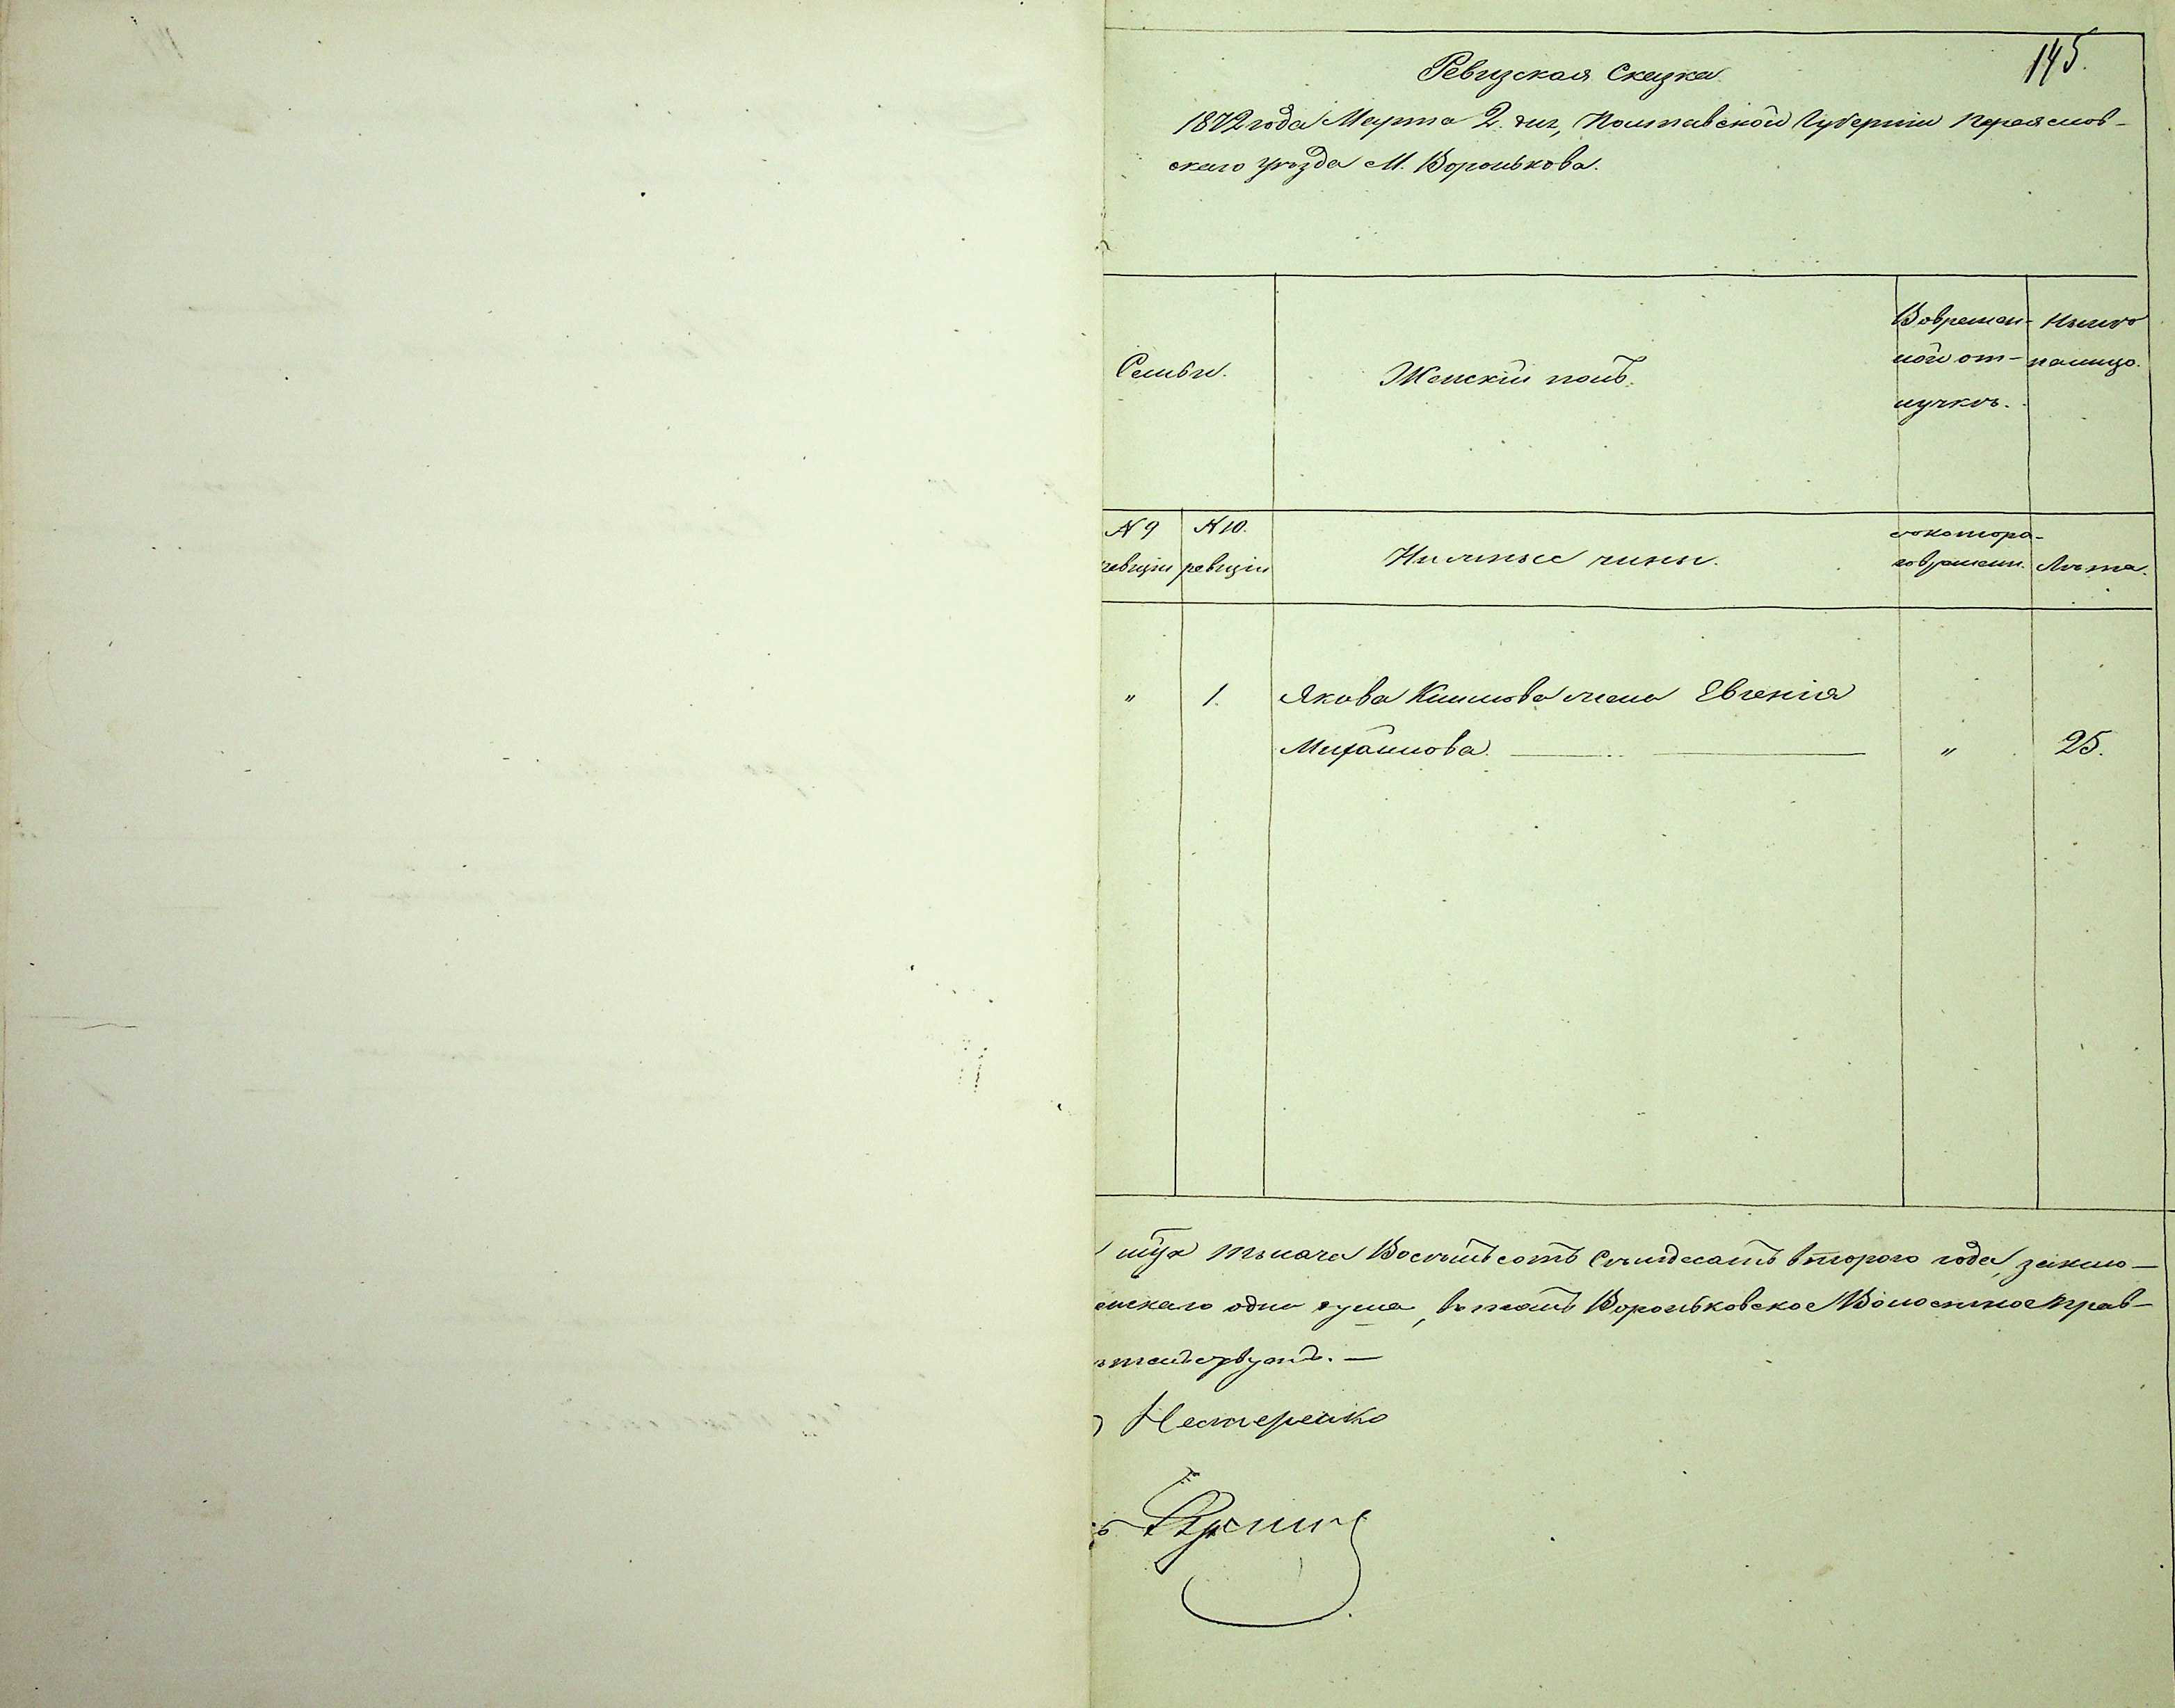 145.
Ревизская Сказка
1872 года Марта 2. дня, Полтавской Губерніи Переяслов-
скаго уѣзда М. Воронькова.
Семьи.
Женскій полъ.
Вовремен-
ной от-
лучкѣ.
Нынѣ
налицо.
№ 9
ревизіи
№ 10.
ревизіи
Нижные чины.
скотора-
го времени.
Лѣта.
" 1. Якова Климова жена Евгенія
Михайлова. " 25.
тысяча Восѣмьсотъ Сѣмдесатъ второго года, заклю-
одна душа, Вороньковское Волостное прав-
Нестеренко